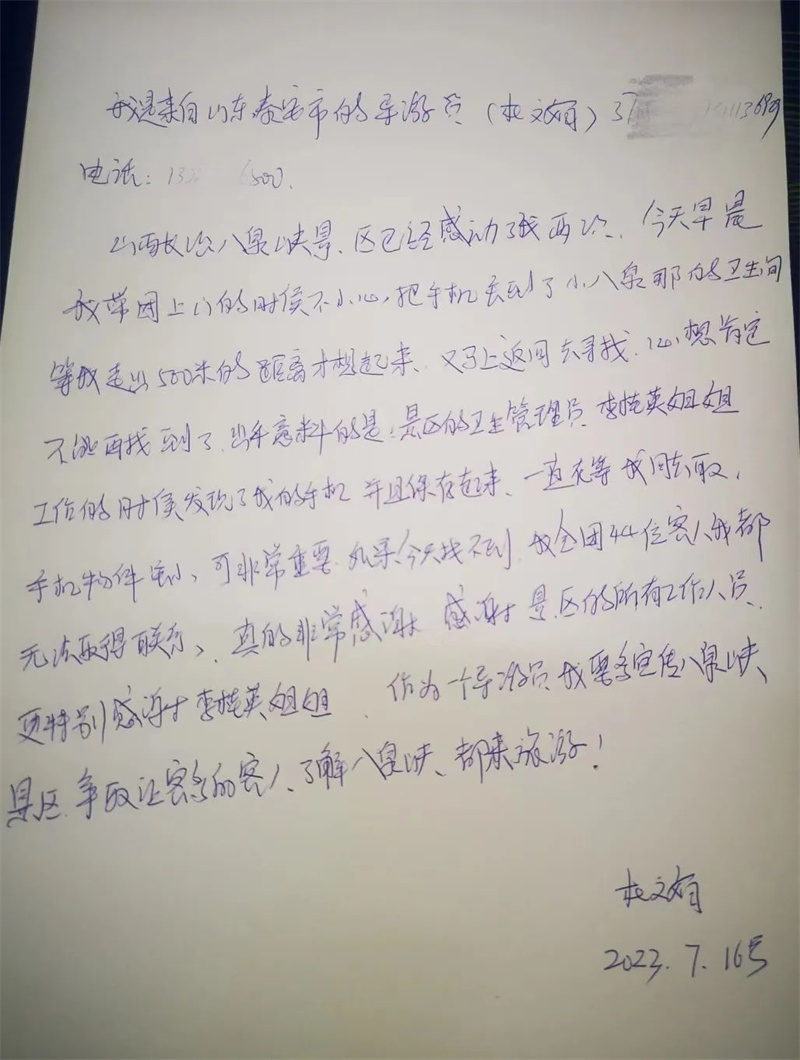 我是来自山东泰安市的导游员（杜文娟）37
电话：13 500.
山西长治八泉峡景、区已经感动了我两次、今天早晨
我带团上山的时候不小心，把手机丢到了小八泉那的卫生间
等我走出500米的距离才想起来、又马上返回去寻找.心想肯定
不能再找到了.出乎意料的是:景区的卫生管理员.李桂英姐姐
工作的时候发现了我的手机 并且保存起来、一直在等我回去取，
手机物件虽小、可非常重要 如果今天找不到.我全团44位客人我都
无法取得联系、真的非常感谢 感谢景区的所有工作人员、
更特别感谢李桂英姐姐.作为一个导游员 我要多宣传八泉峡、
景区.争取让更多的客人、了解八泉峡、都来旅游！
杜文娟
2023.7.16号